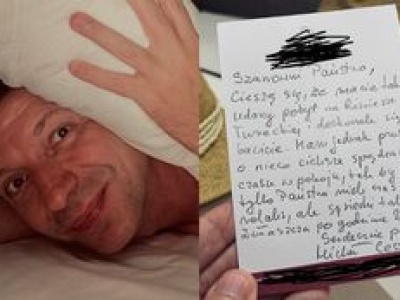 Szanowni Państwo,
Cieszę się, że macie tak
udany pobyt na
Tureckiej i doskonale się
bawicie. Mam jednak
o nieco cichsze
czasu w pokoju, tak by
tylko Państwo mieli
relaks, ale sąsiedzi
Zwłaszcza po godzinie
Serdecznie